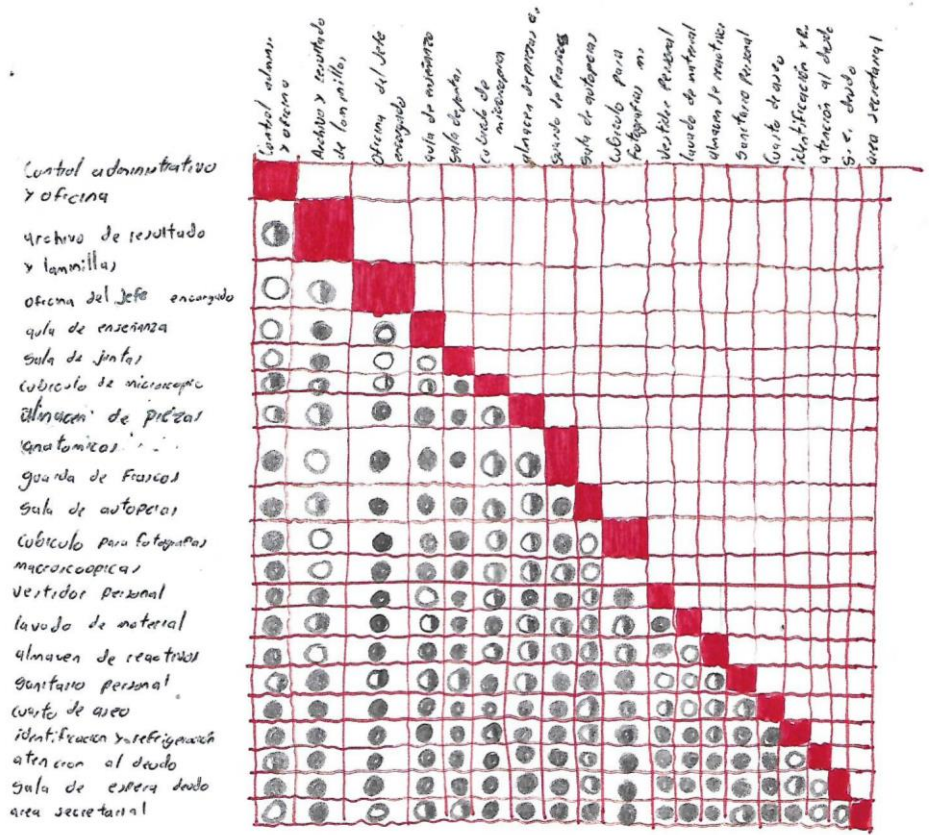 Control admins.
y oficina
Archivo y resultado
de laminillas
Oficina del Jefe
encargado
aula de enseñanza
Sala de juntas
Cubiculo de
microscopia
almacen de piezas a.
Guardo de frascos
Sala de autopcias
Cubiculo para
fotografias m.
Vestidor Personal
lavado de material
almacen de reactivos
Sanitario Personal
Cuarto de aseo
identificación y R.
atención al deudo
S. e. deudo
area secretarial
Control administrativo
y oficina
archivo de resultado
y laminillas
oficina del Jefe encargado
aula de enseñanza
Sala de juntas
Cubiculo de microscopic
almacen de piezas
anatomicas
guarda de Frascos
Sala de autopcias
Cubiculo para fotografias
macroscoopicas
vestidor personal
lavado de material
almaven de reactivos
Sanitario personal
cuarto de aseo
identificacion y refrigeración
atencion al deudo
Sala de espera deudo
area secretarial